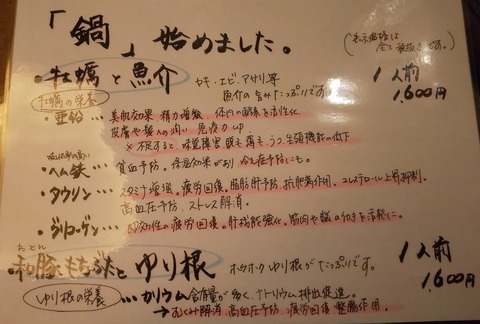 「鍋」始めました。
(表示価格は
全て税抜きです。)
・牡蠣と魚介 カキ・エビ・アサリ等
魚介の旨みたっぷりです。
1人前
1,600円
牡蠣の栄養
・亜鉛… 美肌効果 精力増強、体内の酵素を活性化
皮膚や髪への潤い、免疫力up
※不足すると、味覚障害、脱毛、うつ、生殖機能の低下
吸収率の高い
・ヘム鉄… 貧血予防、保温効果があり 冷え症予防にも。
・タウリン… スタミナ増強、疲労回復、脂肪肝予防、抗肥満作用、コレステロール上昇抑制、
高血圧予防、ストレス解消。
・グリコーゲン… 即効性の疲労回復、肝機能強化、筋肉や脳の働きを活発に。
・和豚もちぶたとゆり根 ホクホクゆり根がたっぷりです。
1人前
1,600円
ゆり根の栄養 … カリウム含有量が多く、ナトリウム排出促進。
→むくみ解消 高血圧予防、疲労回復 整腸作用。